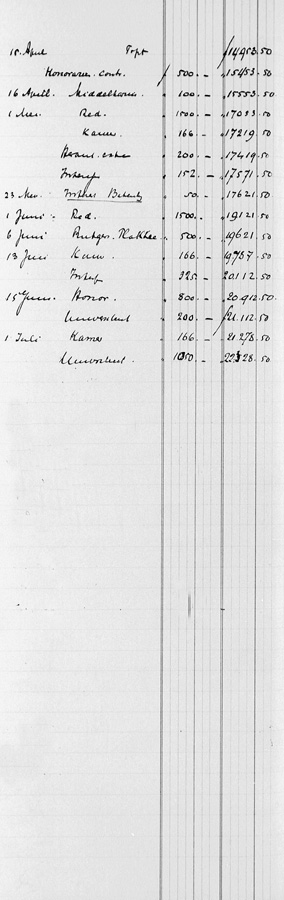 15 April Tspt ƒ 14953.50
Honorarea cont. ƒ 500.— 15453.50
16 April Middelharn. " 100.— 15553.50
1 Mei Red. " 1500— 17053.50
Kamer " 166.— 17219.50
200— 17419.50
" 152.— 17571.50
23 Mei " 50.— 17621.50
1 Juni Red. " 1500.— 19121.50
6 Juni Rutgers. " 500.— 19621.50
13 Juni Kamer " 166.— 19787.50
" 325.— 20112.50
15 Juni Honor. " 800— 20912.50
Universiteit " 200.— ƒ 21.112.50
1 Juli Kamer " 166.— 21278.50
Universiteit. " 1050.— 22328.50